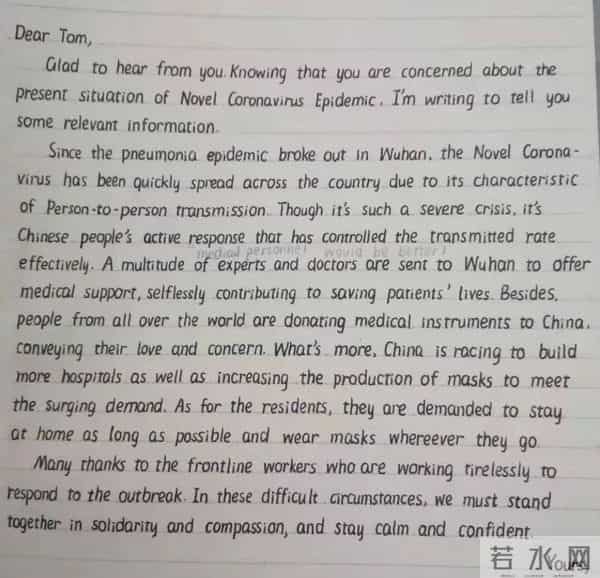 Dear Tom,
Glad to hear from you. Knowing that you are concerned about the
present situation of Novel Coronavirus Epidemic, I'm writing to tell you
some relevant information.
Since the pneumonia epidemic broke out in Wuhan, the Novel Corona-
virus has been quickly spread across the country due to its characteristic
of Person-to-person transmission. Though it's such a severe crisis, it's
Chinese people's active response that has controlled the transmitted rate
medical personnel would be better!
effectively. A multitude of experts and doctors are sent to Wuhan to offer
medical support, selflessly contributing to saving patients' lives. Besides,
people from all over the world are donating medical instruments to China,
conveying their love and concern. What's more, China is racing to build
more hospitals as well as increasing the production of masks to meet
the surging demand. As for the residents, they are demanded to stay
at home as long as possible and wear masks whereever they go.
Many thanks to the frontline workers who are working tirelessly to
respond to the outbreak. In these difficult circumstances, we must stand
together in solidarity and compassion, and stay calm and confident.
Yours,
若水网